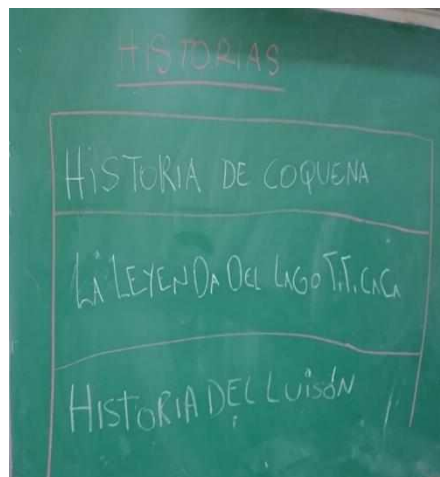 HISTORIAS
HiSTORIA DE COQUENA
LA LEYENDA DEL LAGO T.T.CACA
HISTORIA DEL LUiSÓN